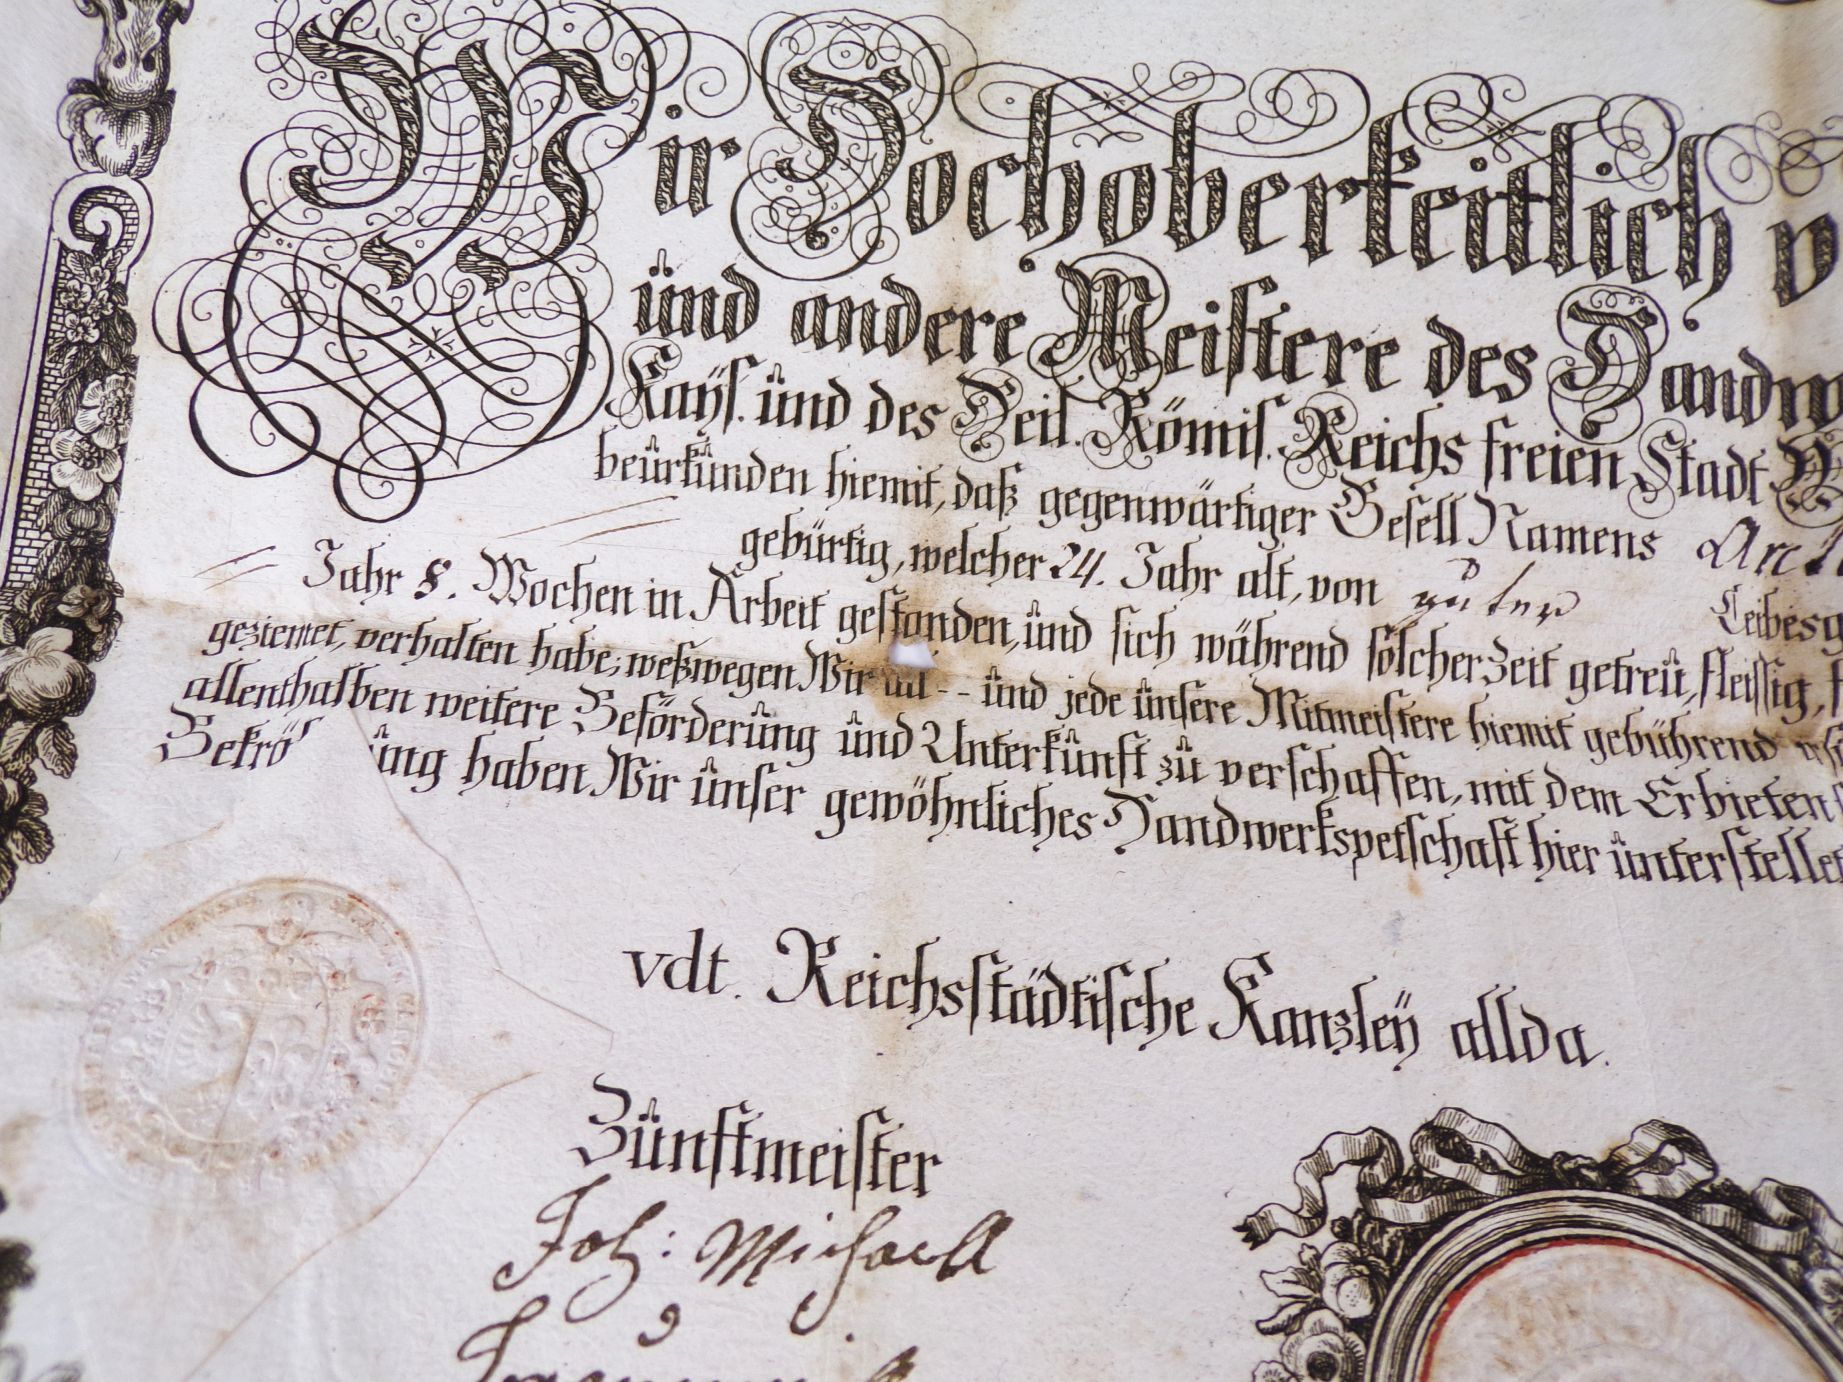 Wir Hochoberkeitlich v
und andere Meistere des Handw
Kays. und des Heil. Römis. Reichs freien Stadt
beurkunden hiemit, daß gegenwärtiger Gesell Namens
gebürtig, welcher 24. Jahr alt, von guter Leibesg
Jahr 8. Wochen in Arbeit gestanden, und sich während solcher Zeit getreu, fleissig,
geziemet, verhalten habe; weßwegen Wir all -- und jede unsere Mitmeistere hiemit gebührend
allenthalben weitere Beförderung und Unterkunft zu verschaffen, mit dem Erbieten
Bekrö ung haben Wir unser gewöhnliches Handwerkspetschaft hier unterstellet
vdt. Reichsstädtische Kanzleÿ allda.
Zunftmeister
Joh: Michael